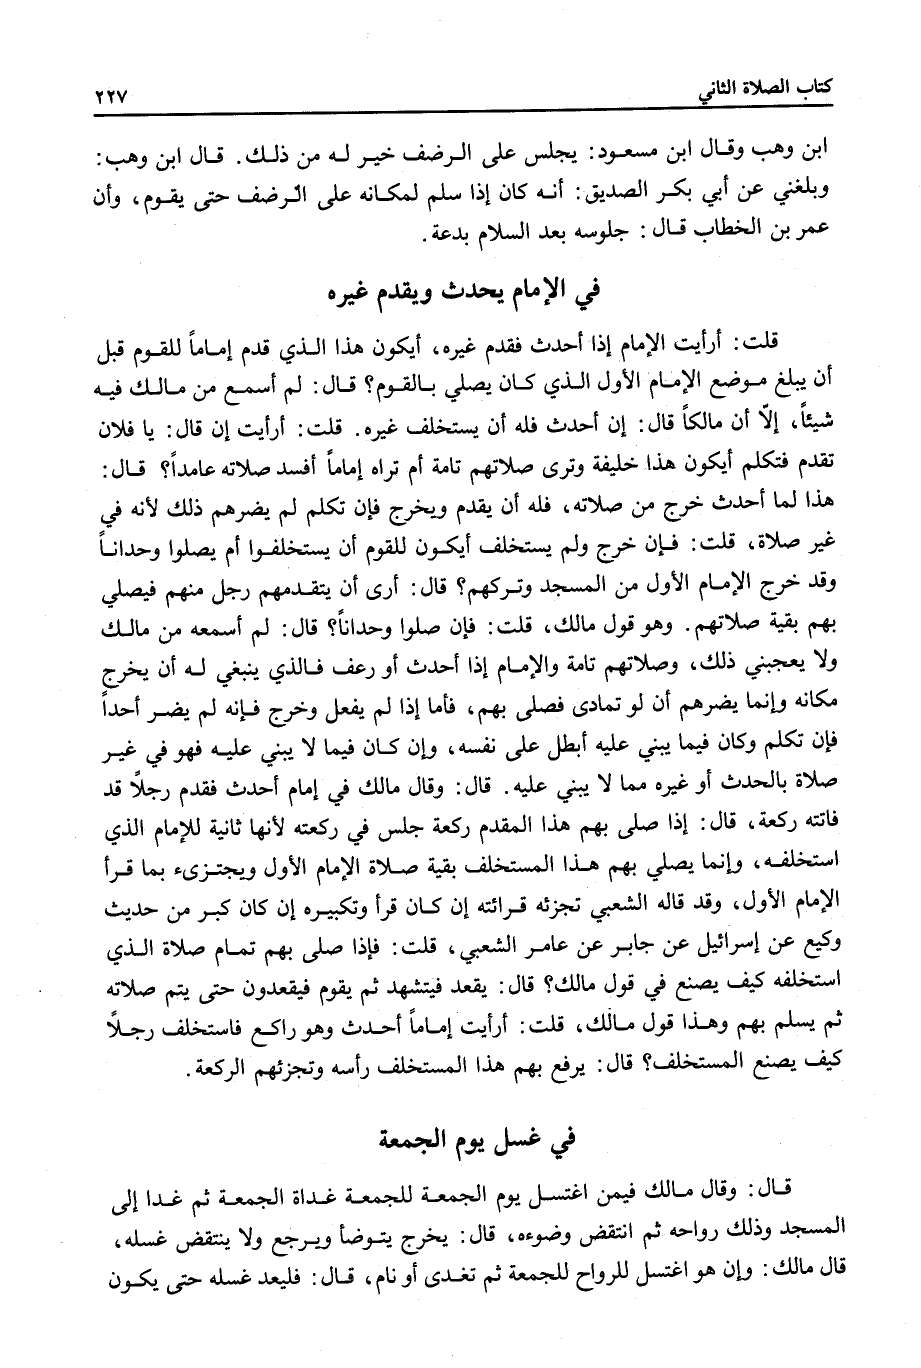 كتاب الصلاة الثاني
٢٢٧
ابن وهب وقال ابن مسعود: يجلس على الرضف خير له من ذلك. قال ابن وهب:
وبلغني عن أبي بكر الصديق: أنه كان إذا سلم لمكانه على الرضف حتى يقوم، وأن
عمر بن الخطاب قال: جلوسه بعد السلام بدعة.
في الإمام يحدث ويقدم غيره
قلت: أرأيت الإمام إذا أحدث فقدم غيره، أيكون هذا الذي قدم إماماً للقوم قبل
أن يبلغ موضع الإمام الأول الذي كان يصلي بالقوم؟ قال: لم أسمع من مالك فيه
شيئاً، إلّا أن مالكاً قال: إن أحدث فله أن يستخلف غيره. قلت: أرأيت إن قال: يا فلان
تقدم فتكلم أيكون هذا خليفة وترى صلاتهم تامة أم تراه إماماً أفسد صلاته عامداً؟ قال:
هذا لما أحدث خرج من صلاته، فله أن يقدم ويخرج فإن تكلم لم يضرهم ذلك لأنه في
غير صلاة، قلت: فإن خرج ولم يستخلف أيكون للقوم أن يستخلفوا أم يصلوا وحداناً
وقد خرج الإمام الأول من المسجد وتركهم؟ قال: أرى أن يتقدمهم رجل منهم فيصلي
بهم بقية صلاتهم. وهو قول مالك، قلت: فإن صلوا وحداناً؟ قال: لم أسمعه من مالك
ولا يعجبني ذلك، وصلاتهم تامة والإمام إذا أحدث أو رعف فالذي ينبغي له أن يخرج
مكانه وإنما يضرهم أن لو تمادى فصلى بهم، فأما إذا لم يفعل وخرج فإنه لم يضر أحداً
فإن تكلم وكان فيما يبني عليه أبطل على نفسه، وإن كان فيما لا يبني عليه فهو في غير
صلاة بالحدث أو غيره مما لا يبني عليه. قال: وقال مالك في إمام أحدث فقدم رجلاً قد
فاتته ركعة، قال: إذا صلى بهم هذا المقدم ركعة جلس في ركعته لأنها ثانية للإمام الذي
استخلفه، وإنما يصلي بهم هذا المستخلف بقية صلاة الإمام الأول ويجتزىء بما قرأ
الإمام الأول، وقد قاله الشعبي تجزئه قرائته إن كان قرأ وتكبيره إن كان كبر من حديث
وكيع عن إسرائيل عن جابر عن عامر الشعبي، قلت: فإذا صلى بهم تمام صلاة الذي
استخلفه كيف يصنع في قول مالك؟ قال: يقعد فيتشهد ثم يقوم فيقعدون حتى يتم صلاته
ثم يسلم بهم وهذا قول مالك، قلت: أرأيت إماماً أحدث وهو راكع فاستخلف رجلاً
كيف يصنع المستخلف؟ قال: يرفع بهم هذا المستخلف رأسه وتجزئهم الركعة.
في غسل يوم الجمعة
قال: وقال مالك فيمن اغتسل يوم الجمعة للجمعة غداة الجمعة ثم غدا إلى
المسجد وذلك رواحه ثم انتقض وضوءه، قال: يخرج يتوضأ ويرجع ولا ينتقض غسله،
قال مالك: وإن هو اغتسل للرواح للجمعة ثم تغدى أو نام، قال: فليعد غسله حتى يكون